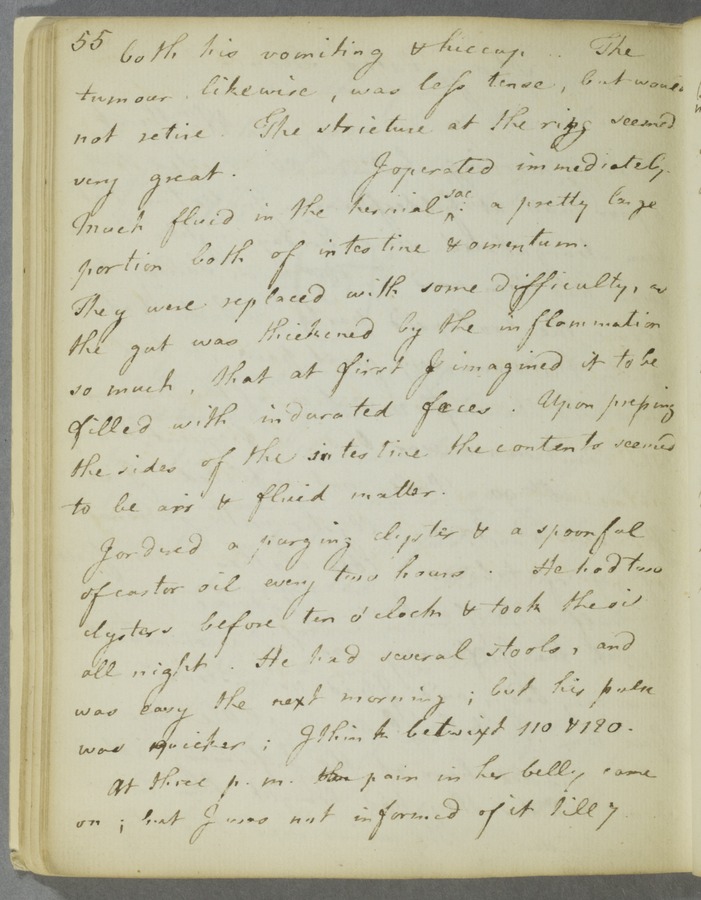 55 both his vomiting & hiccup .. The
tumour likewise, was less tense, but would
not retire. The stricture at the ring seemed
very great. I operated immediately.
Much fluid in the hernial sac: a pretty large
portion both of intestine & omentum.
They were replaced with some difficulty, as
the gut was thickened by the inflammation
so much, that at first I imagined it to be
filled with indurated feces. Upon pressing
the sides of the intestine the contents seemed
to be air & fluid matter.
I ordred a purging clyster & a spoonful
of castor oil every two hours. He had two
clysters before ten o'clock & took the oil
all night. He had several stools, and
was easy the next morning; but his pulse
was quicker; I think betwixt 110 & 120.
At three p.m. pain in her belly came
on; but I was not informed of it till 7